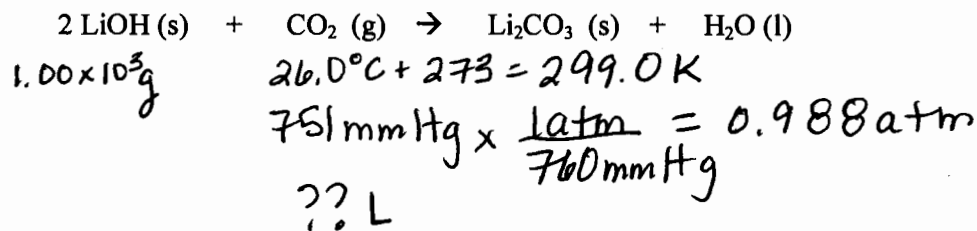 2 LiOH (s) + CO₂ (g) → Li₂CO₃ (s) + H₂O (l)
1.00 x 10³g 26.0°C + 273 = 299.0 K
751 mmHg x 1atm / 760 mmHg = 0.988 atm
?? L